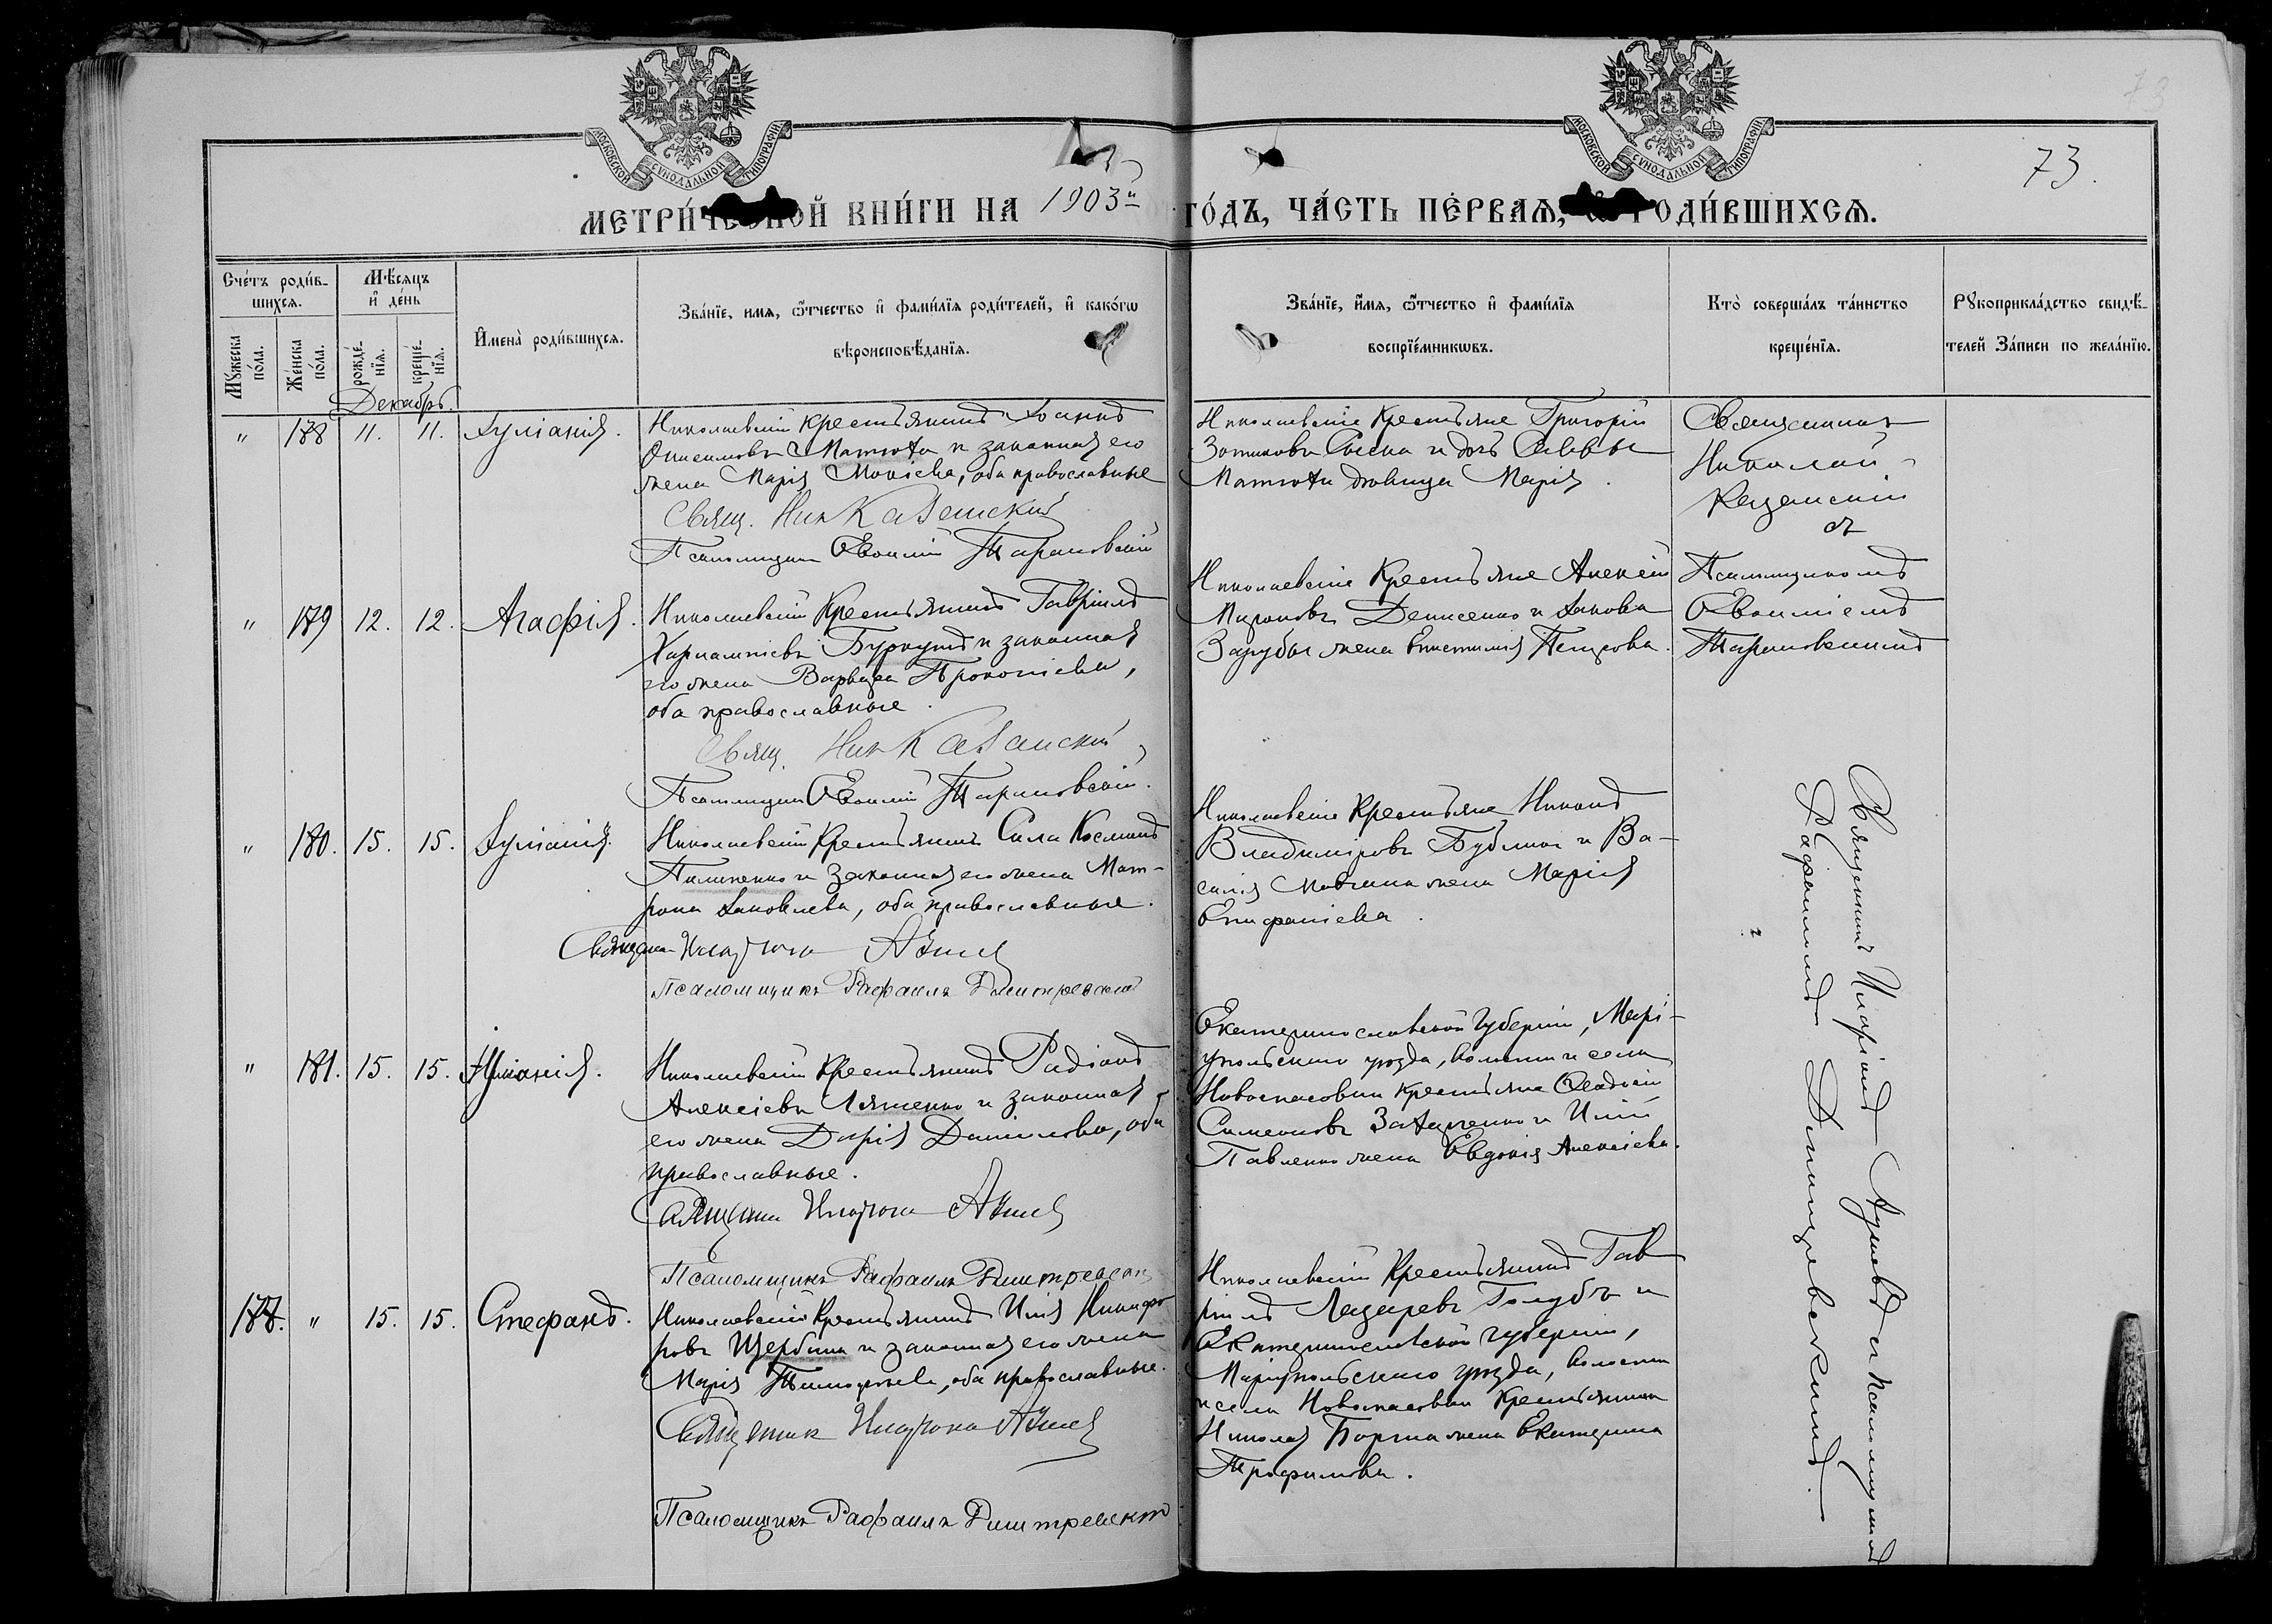 МОСКОВСКОЙ СѴНОДАЛЬНОЙ ТИПОГРАФІИ
МОСКОВСКОЙ СѴНОДАЛЬНОЙ ТИПОГРАФІИ
73.
МЕТРИ́ЧЕСКОЙ КНИ́ГИ НА 1903й ГО́ДЪ, ЧА́СТЬ ПЕ́РВАЯ, РОДИ́ВШИХСЯ.
Сче́тъ роди́в-
шихся.
Мѣ́сяцъ
и҆ де́нь
Мꙋ́жеска по́ла.
Же́нска по́ла.
рожде́-нїя.
креще́-нїя.
И҆мена̀ роди́вшихся.
Зва́нїе, имя, ѻ҆́тчество и҆ фами́лїя роди́телей, и҆ како́гѡ
вѣроисповѣ́данїя.
Зва́нїе, и҆́мя, ѻ҆́тчество и҆ фами́лїя
воспрїе́мникѡвъ.
Кто̀ соверша́лъ та́инство
креще́нїя.
Рꙋкоприкла́дство свидѣ́-
телей За́писи по жела́нїю.
Декабрь.
" 178 11. 11. Іуліанія.
Николаевскій крестьянинъ Іоаннъ
Онисимовъ и законная его
жена Марія Моисіева, оба православные
Свящ. Ник Казанскій
Псаломщикъ Евѳимій Тарановскій
Николаевскіе крестьяне Григорій
Зотиковъ и дочь Саввы
девица Марія.
Священникъ
Николай
Казанскій
съ
Псаломщикомъ
Евѳиміемъ
Тарановскимъ
" 179 12. 12. Агафія.
Николаевскій крестьянинъ Гавріилъ
Харлампіевъ Буркутъ и законная
его жена Варвара Прокопіева,
оба православные.
Свящ. Ник Казанскій
Псаломщикъ Евѳимій Тарановскій.
Николаевскіе крестьяне Алексій
Мироновъ Денисенко и Іакова
Зарубы жена Епистимія Петрова.
" 180. 15. 15. Іуліанія.
Николаевскій крестьянинъ Сила Косминъ
Пилипенко и законная его жена Мат-
рона Іаковлева, оба православные.
Священникъ Иларіонъ
Псаломщикъ Рафаилъ
Николаевскіе крестьяне Никонъ
Владиміровъ Бублик и Ва-
силія жена Марія
Епифаніева.
Священникъ Иларіонъ и псаломщикъ
Рафаиломъ
" 181. 15. 15. Іуліанія.
Николаевскій крестьянинъ Родіонъ
Алексіевъ Ляшенко и законная
его жена Дарія Даніилова, оба
православные.
Священникъ Иларіонъ
Псаломщикъ Рафаилъ
Екатеринославской губерніи, Марі-
упольскаго уѣзда, волости и села
Новоспасовки крестьяне Ѳеодосій
Симеоновъ и Иліи
Павленко жена Евдокія Алексіева.
" 15. 15. Стефанъ.
Николаевскій крестьянинъ Илія Никифо
ровъ Щербина и законная его жена
Марія Тимофеева, оба православные.
Священник Иларіонъ
Псаломщикъ Рафаилъ
Николаевскій крестьянинъ Гав
ріилъ Лазаревъ Голубъ и
Екатеринославской губерніи,
Маріупольскаго уѣзда, волости
и села Новоспасовки крестьянина
Николая жена Екатерина
Трофимова.